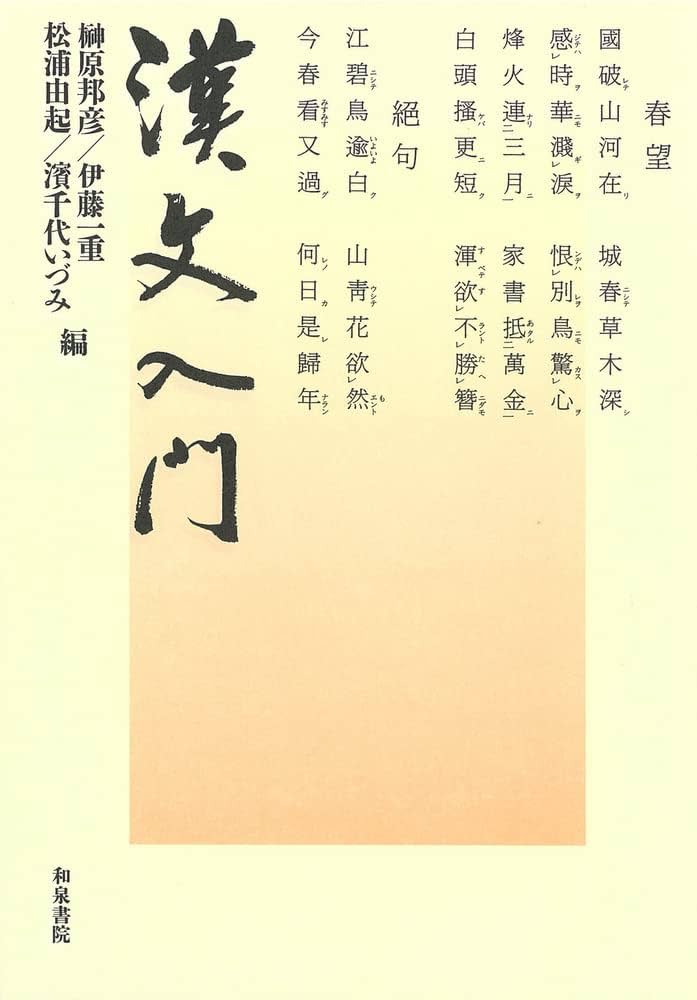 春望
國破レテ山河在リ　城春ニシテ草木深シ
感ジテハレ時ヲ華ニモ濺ギレ淚ヲ　恨ンデハレ別レヲ鳥ニモ驚カスレ心ヲ
烽火連ナリ二三月ニ一　家書抵あタル二萬金ニ一
白頭搔ケバ更ニ短ク　渾すベテ欲すレ不ラントレ勝たヘレ簪ニダモ
絕句
江碧ニシテ鳥逾いよいよ白ク　山靑ウシテ花欲レ然もエント
今春看みすみす又過グ　何レノ日カ是レ歸年ナラン
漢文入門
榊原邦彦／伊藤一重
松浦由起／濱千代いづみ　編
和泉書院